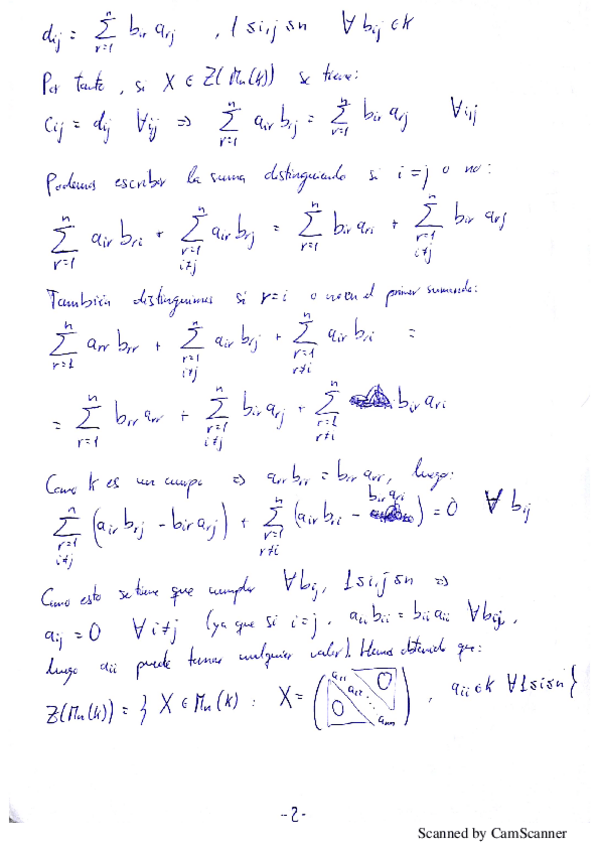 dij = Σ_{r=1}^{n} bir arj , 1≤i,j≤n ∀ bij ∈ k
Por tanto, si X ∈ Z(Mn(k)) se tiene:
Cij = dij ∀ij ⇒ Σ_{r=1}^{n} air brj = Σ_{r=1}^{n} bir arj ∀i,j
Podemos escribir la suma distinguiendo si i=j o no:
Σ_{r=1}^{n} air bri + Σ_{r=1, i≠j}^{n} air brj = Σ_{r=1}^{n} bir ari + Σ_{r=1, i≠j}^{n} bir arj
También distinguimos si r=i o no en el primer sumando:
Σ_{r=1}^{n} arr brr + Σ_{r=1, i≠j}^{n} air brj + Σ_{r=1, r≠i}^{n} air bri =
= Σ_{r=1}^{n} brr arr + Σ_{r=1, i≠j}^{n} bir arj + Σ_{r=1, r≠i}^{n} bir ari
Como k es un cuerpo ⇒ arr brr = brr arr, luego:
Σ_{r=1, i≠j}^{n} (air brj - bir arj) + Σ_{r=1, r≠i}^{n} (air bri - bir ari) = 0 ∀ bij
Como esto se tiene que cumplir ∀bij, 1≤i,j≤n ⇒
aij = 0 ∀i≠j (ya que si i=j, aii bii = bii aii ∀bij,
luego aii puede tomar cualquier valor). Hemos obtenido que:
Z(Mn(k)) = { X ∈ Mn(k) : X = (a11 a22 ... ann 0 0) , aii ∈ k ∀1≤i≤n }
-2-
Scanned by CamScanner